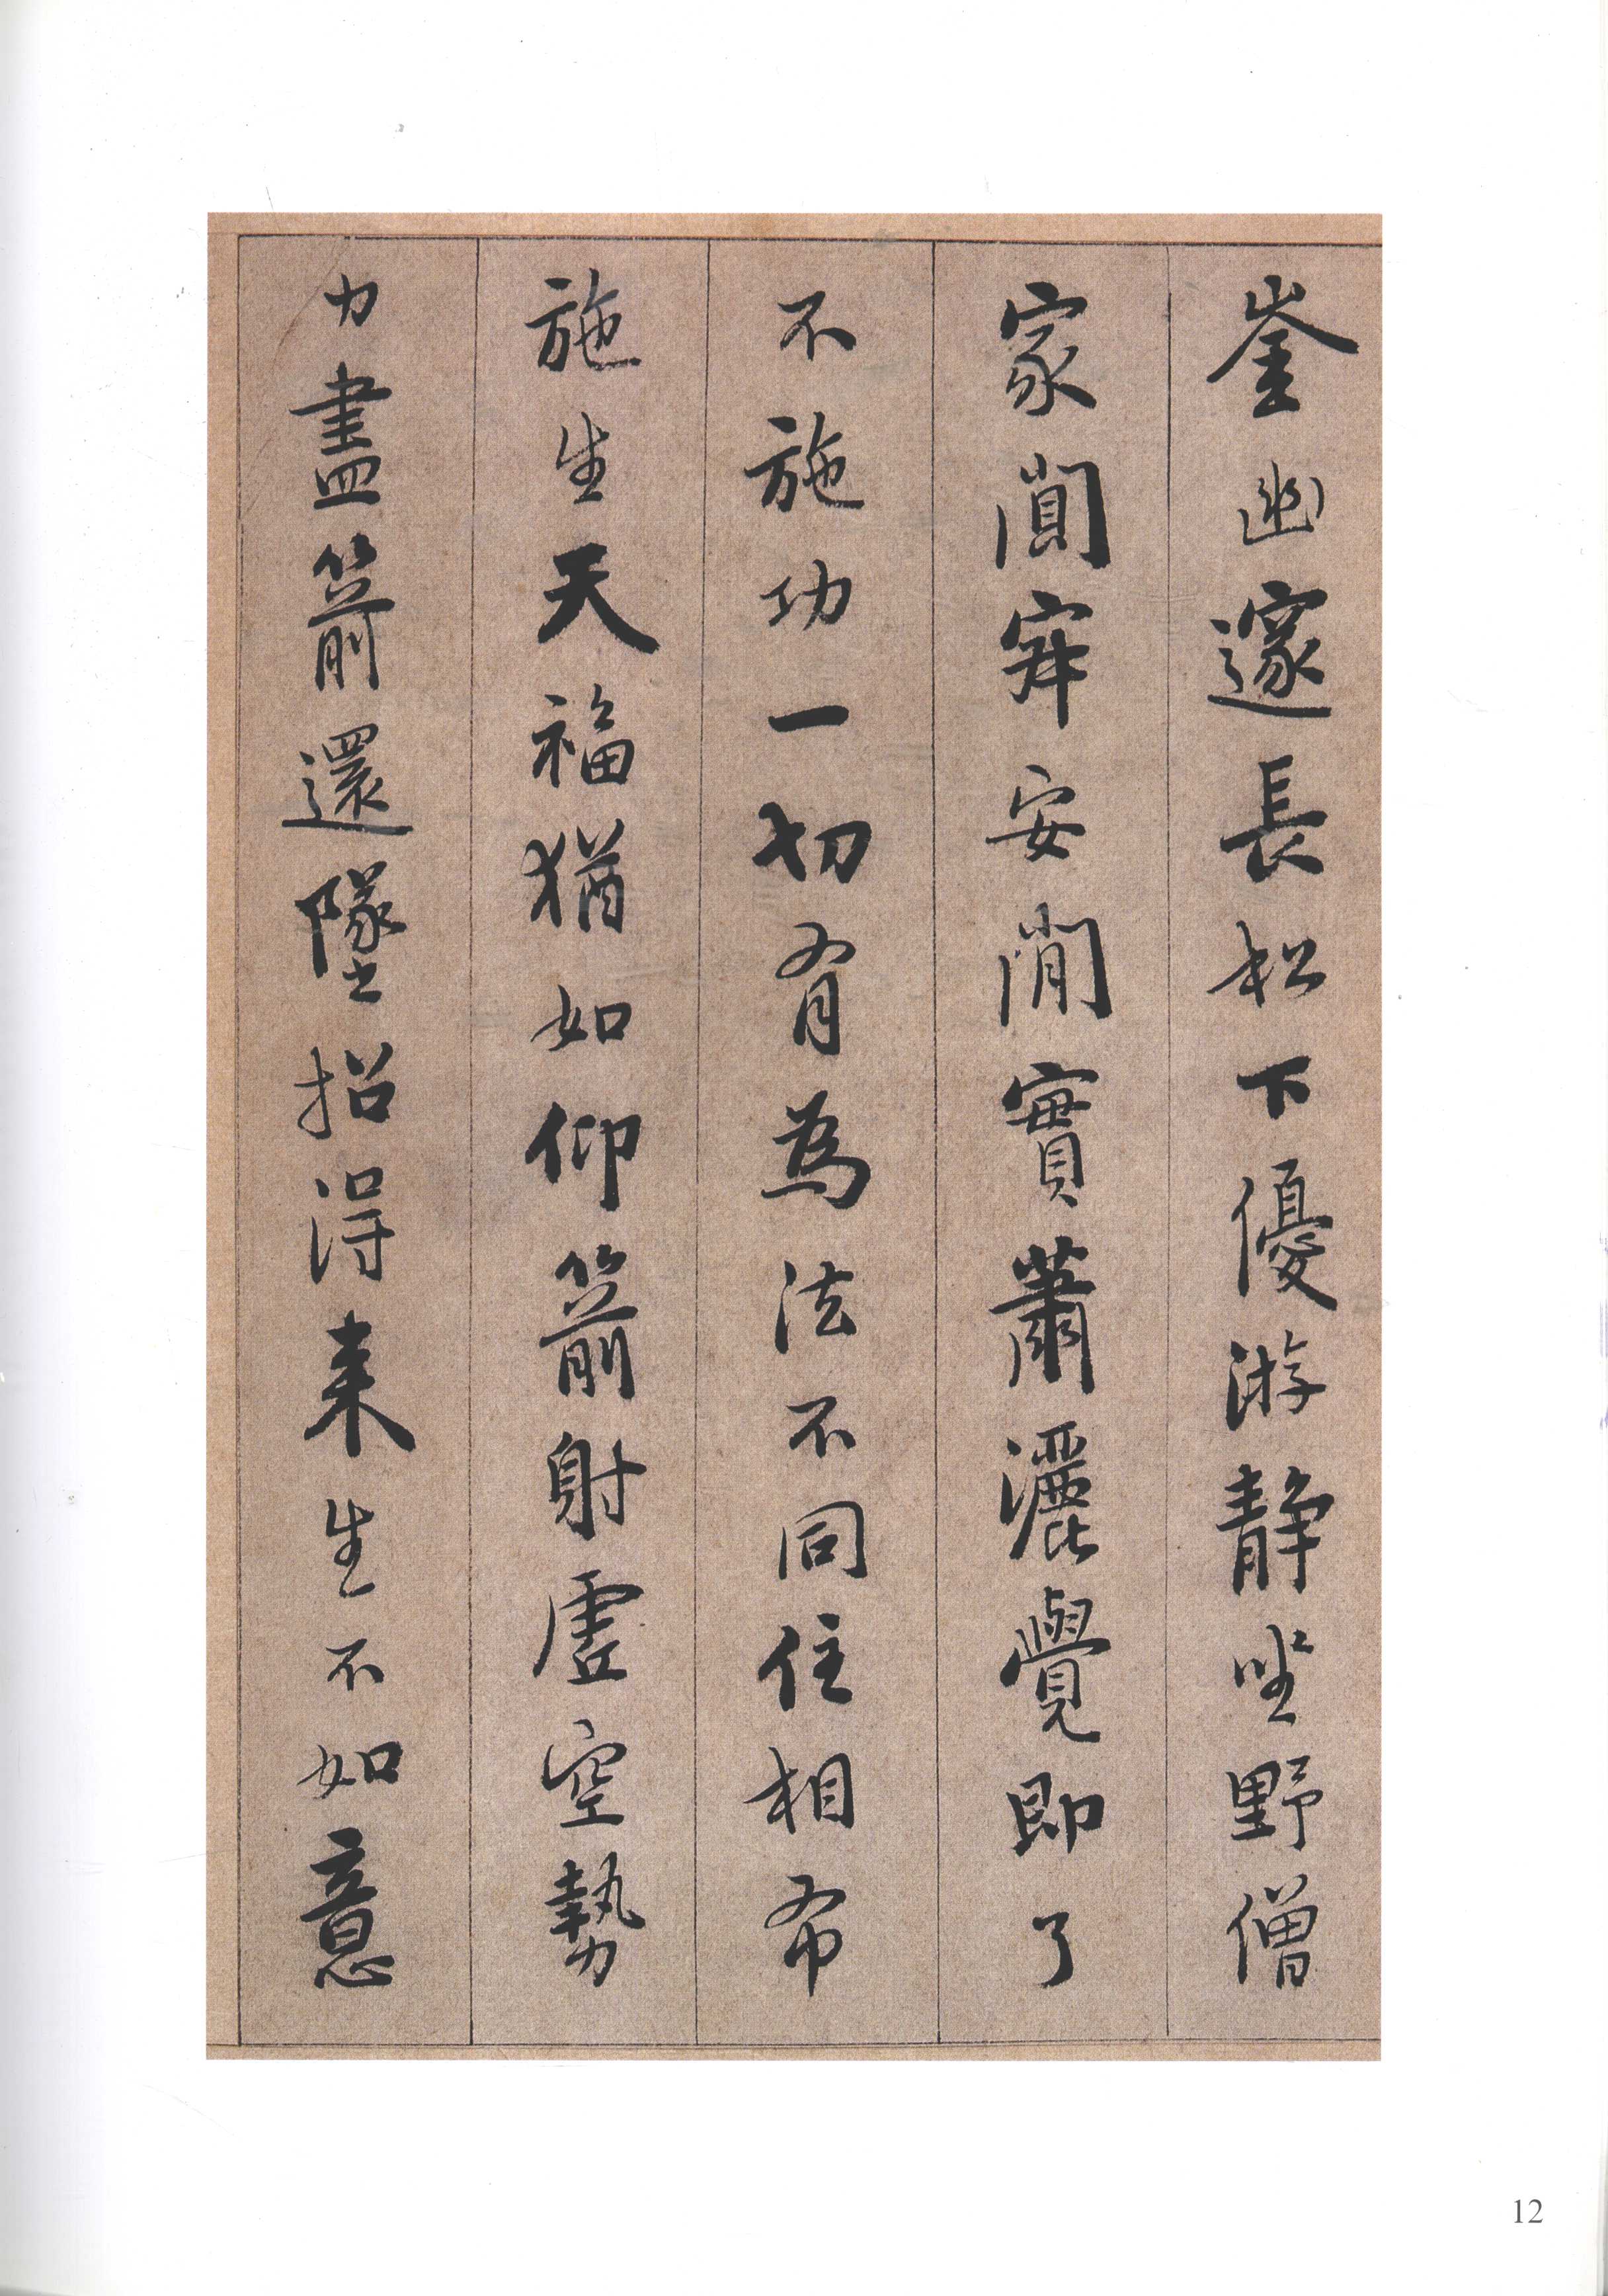 崟幽邃長松下優游靜坐野僧
家闃寂安閑實蕭灑覺即了
不施功一切有為法不同住相布
施生天福猶如仰箭射虛空勢
力盡箭還墜招得来生不如意
12